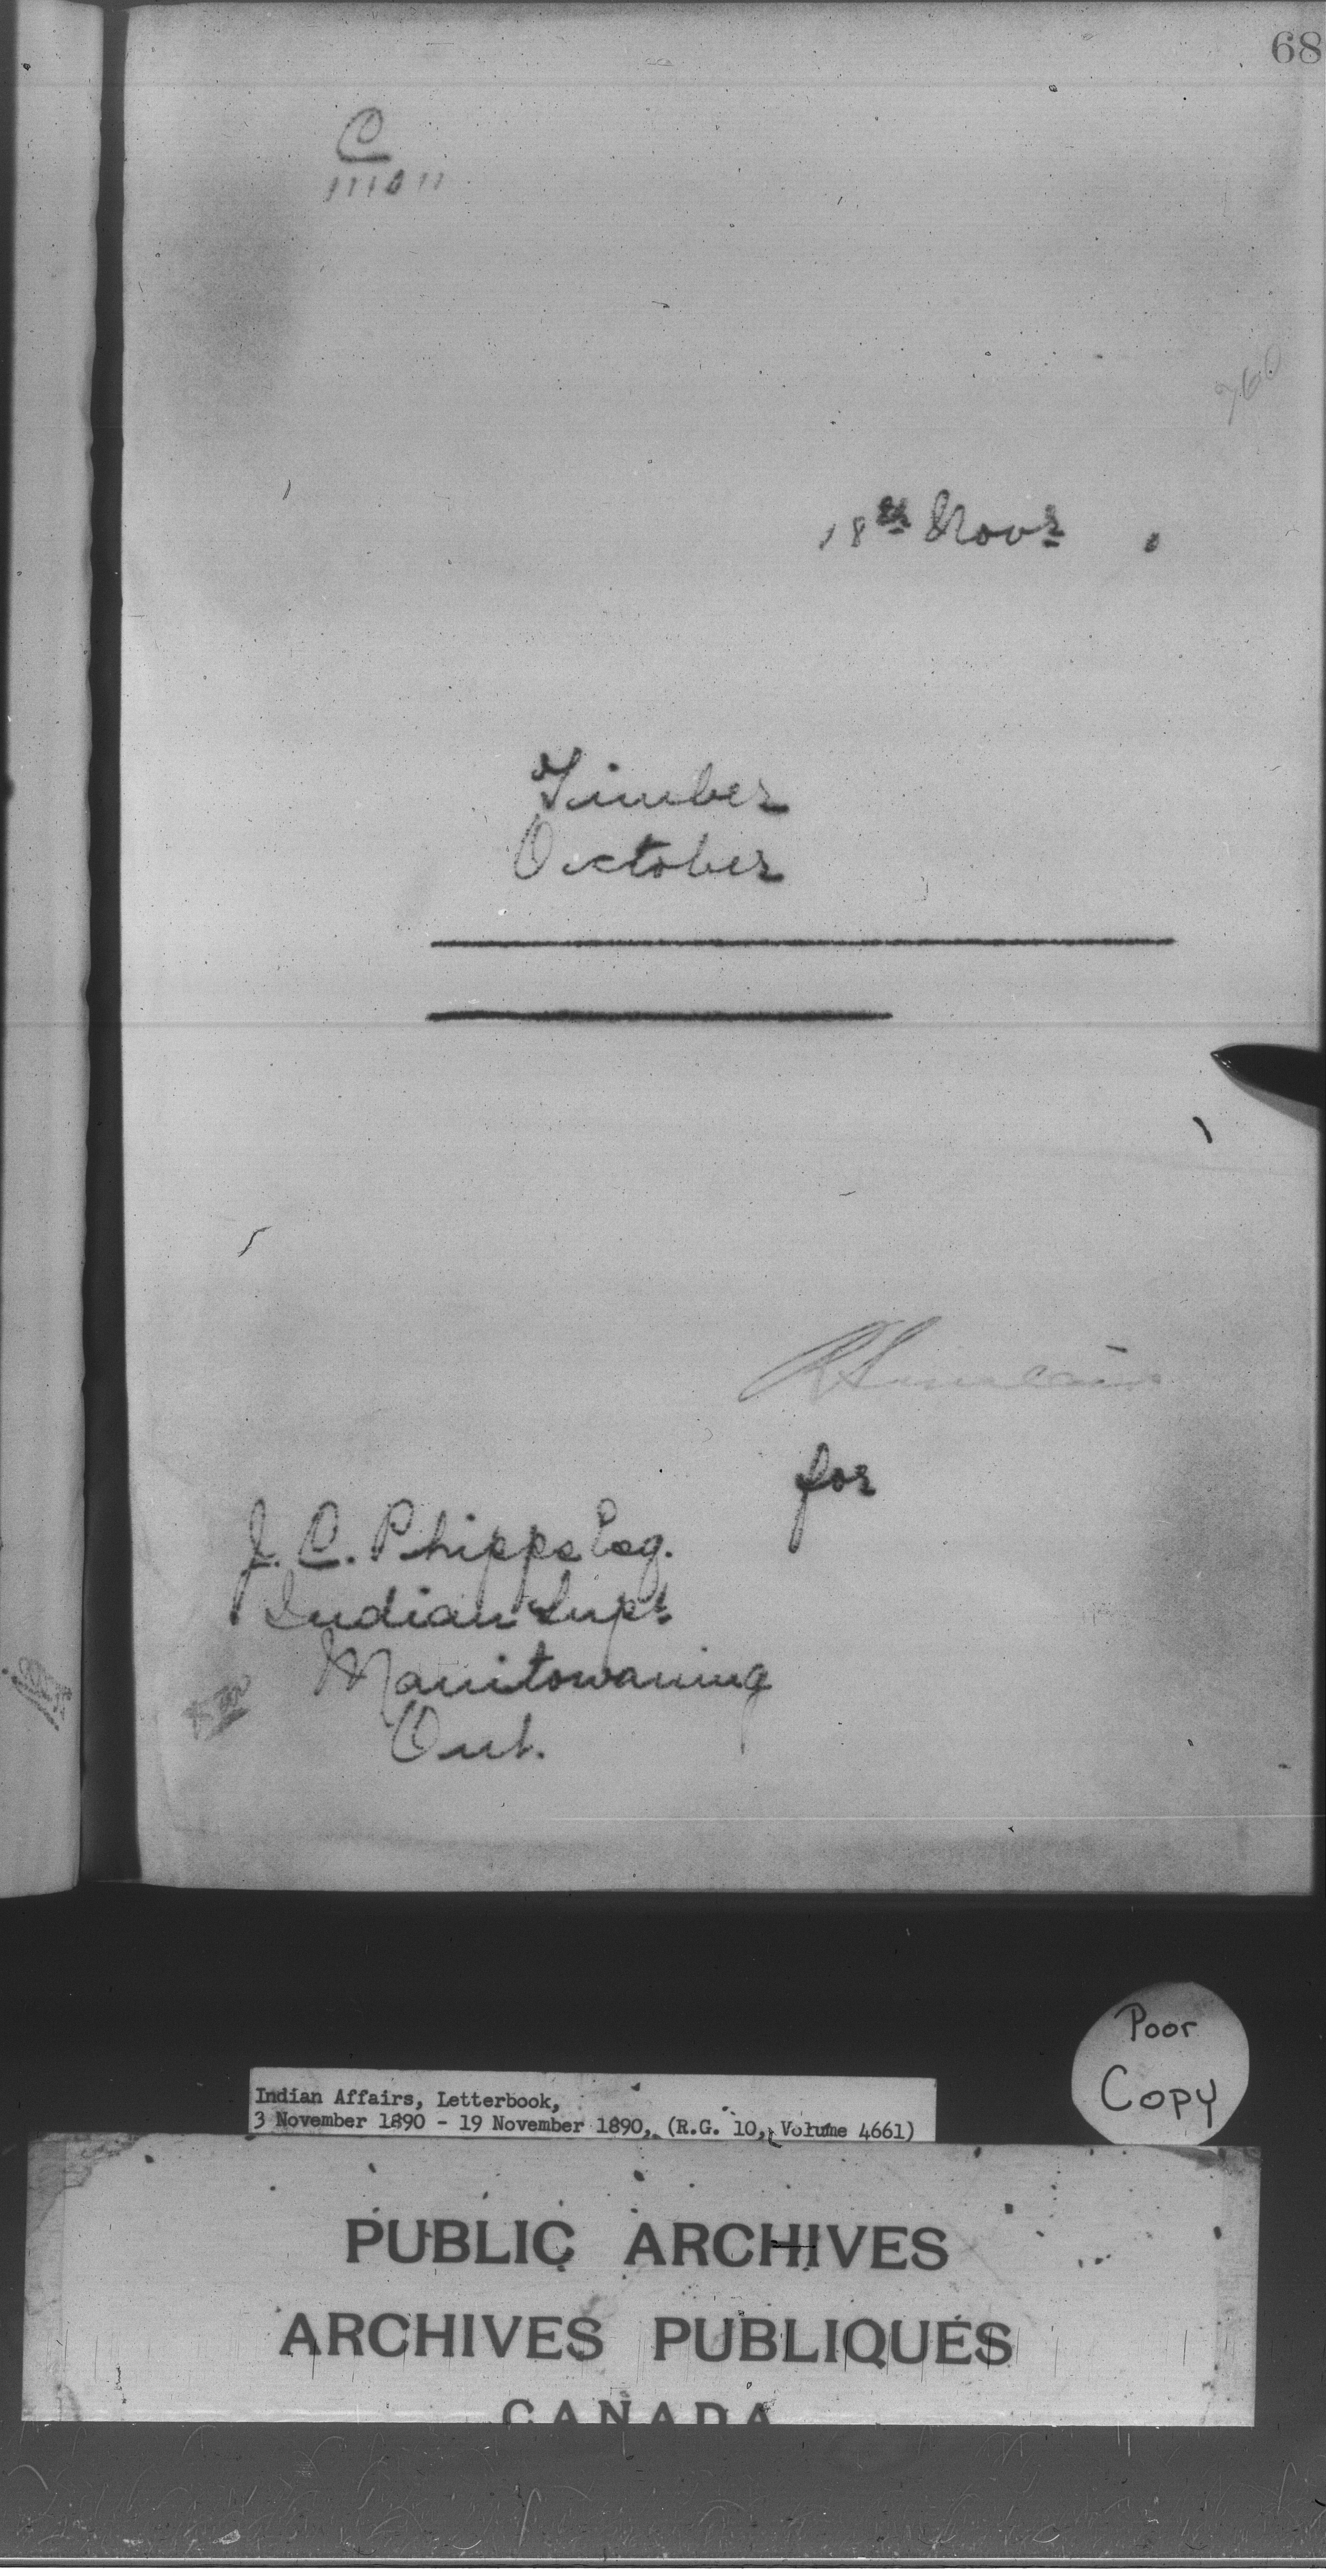 68
C
760
18th Novr
Timber
October
for
J. C. Phipps Esq.
Indian Supt
Manitowaning
Ont.
Poor
Copy
Indian Affairs, Letterbook,
3 November 1890 - 19 November 1890, (R.G. 10, Volume 4661)
PUBLIC ARCHIVES
ARCHIVES PUBLIQUES
CANADA